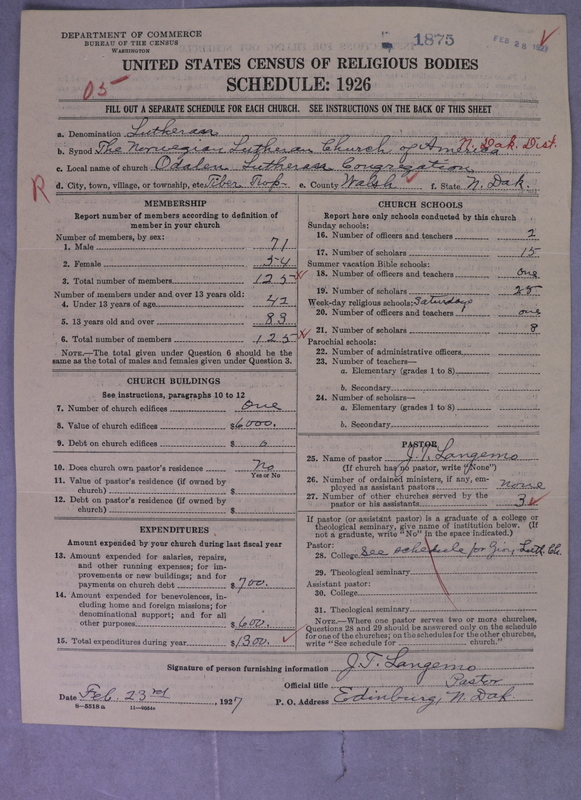 DEPARTMENT OF COMMERCE
BUREAU OF THE CENSUS
WASHINGTON
1875
FEB 28 1927
UNITED STATES CENSUS OF RELIGIOUS BODIES
SCHEDULE: 1926
05
FILL OUT A SEPARATE SCHEDULE FOR EACH CHURCH. SEE INSTRUCTIONS ON THE BACK OF THIS SHEET
a. Denomination Lutheran
b. Synod The Norwegian Lutheran Church of America N. Dak. Dist.
c. Local name of church Odalen Lutheran Congregation
R d. City, town, village, or township, etc. Tiber Twp. e. County Walsh f. State N. Dak.
MEMBERSHIP
Report number of members according to definition of
member in your church
Number of members, by sex:
1. Male 71
2. Female 54
3. Total number of members 125
Number of members under and over 13 years old:
4. Under 13 years of age 42
5. 13 years old and over 83
6. Total number of members 125
NOTE.—The total given under Question 6 should be the
same as the total of males and females given under Question 3.
CHURCH BUILDINGS
See instructions, paragraphs 10 to 12
7. Number of church edifices One
8. Value of church edifices $6000.
9. Debt on church edifices $ 0
10. Does church own pastor's residence? No
Yes or No
11. Value of pastor's residence (if owned by
church) $
12. Debt on pastor's residence (if owned by
church) $
EXPENDITURES
Amount expended by your church during last fiscal year
13. Amount expended for salaries, repairs,
and other running expenses; for im-
provements or new buildings; and for
payments on church debt $700.
14. Amount expended for benevolences, in-
cluding home and foreign missions; for
denominational support; and for all
other purposes $600.
15. Total expenditures during year $1300.
CHURCH SCHOOLS
Report here only schools conducted by this church
Sunday schools:
16. Number of officers and teachers 2
17. Number of scholars 15
Summer vacation Bible schools:
18. Number of officers and teachers one
19. Number of scholars 28
Week-day religious schools: Saturdays
20. Number of officers and teachers one
21. Number of scholars 8
Parochial schools:
22. Number of administrative officers
23. Number of teachers—
a. Elementary (grades 1 to 8)
b. Secondary
24. Number of scholars—
a. Elementary (grades 1 to 8)
b. Secondary
PASTOR
25. Name of pastor J. T. Langemo
(If church has no pastor, write "None")
26. Number of ordained ministers, if any, em-
ployed as assistant pastors none
27. Number of other churches served by the
pastor or his assistants 3
If pastor (or assistant pastor) is a graduate of a college or
theological seminary, give name of institution below. (If
not a graduate, write "No" in the space indicated.)
Pastor:
28. College See schedule for Luth. Ch.
29. Theological seminary
Assistant pastor:
30. College
31. Theological seminary
NOTE.—Where one pastor serves two or more churches,
Questions 28 and 29 should be answered only on the schedule
for one of the churches; on the schedules for the other churches,
write "See schedule for church."
Signature of person furnishing information J. T. Langemo
Official title Pastor
Date Feb. 23rd, 1927 P. O. Address Edinburg, N. Dak.
8—5518a 11—9664a